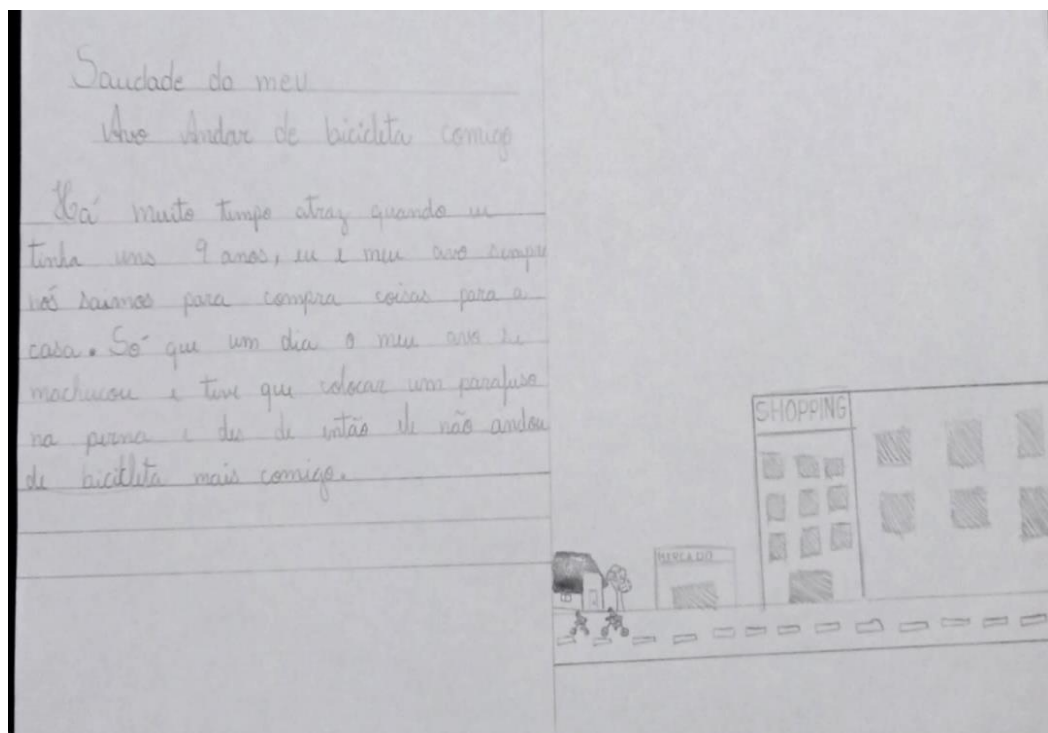 Saudade do meu
Avo Andar de bicicleta comigo
Há muito tempo atraz quando eu
tinha uns 9 anos, eu e meu avo sempre
nós saimos para compra coisas para a
casa. Só que um dia o meu avo se
machucou e teve que colocar um parafuso
na perna e des de então ele não andou
de bicitleta mais comigo.
SHOPPING
MERCADO